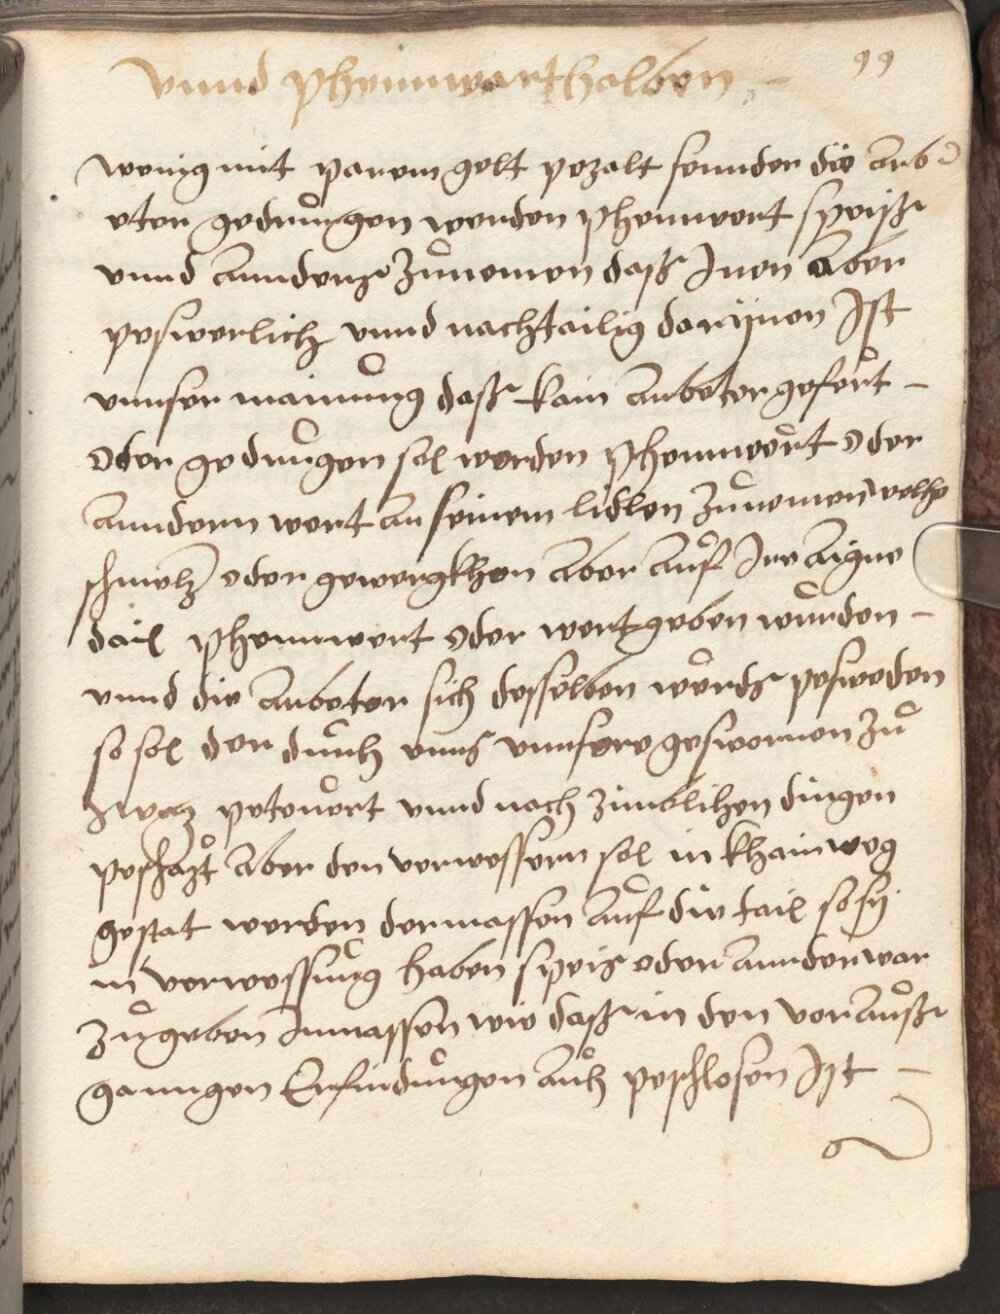 99
vnnd phenwerthalben
wenig mit parem gelt pezalt sonnder die arb
eter gedrungen werden phenwert speiß
vnnd annders zůnemen daß Inen aber
peswerlich vnnd nachtailig darÿnen Ist
vnnser mainung daß kain arbeter gefert
oder gedrungen sol werden phenwert oder
anndern wert an seinem lidlon zůnemen welhe
schmelz oder gewergkhen aber auf Ire aigne
dail phenwert oder wert geben wurden
vnnd die arbeter sich desselben werds peswerden
so sol der durch vnns vnnsere geswornen zů
petewert vnnd nach zimblichen dingen
peschazt aber den verwessern sol in khain weg
gestat werden dermassen auf die tail so sÿ
in verwessung haben speis oder annder war
zůgeben Inmassen wie daß in den vor auß
ganngen Erfindungen auch peschlosen Ist